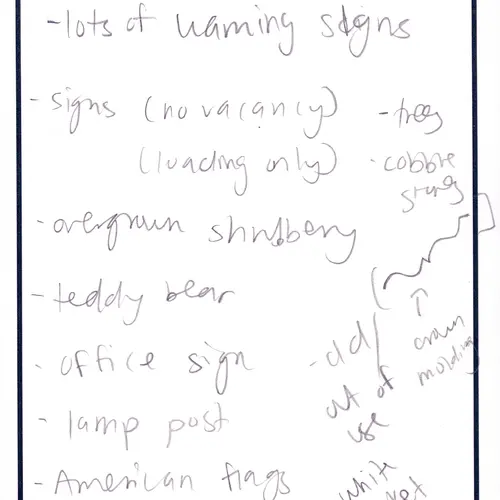 -lots of warning signs
- signs (no vacancy)
(loading only)
- trees
- cobble
stones
- overgrown shrubbery
- teddy bear
- office sign
- lamp post
- American flags
- old/
out of
use
crown
molding
white